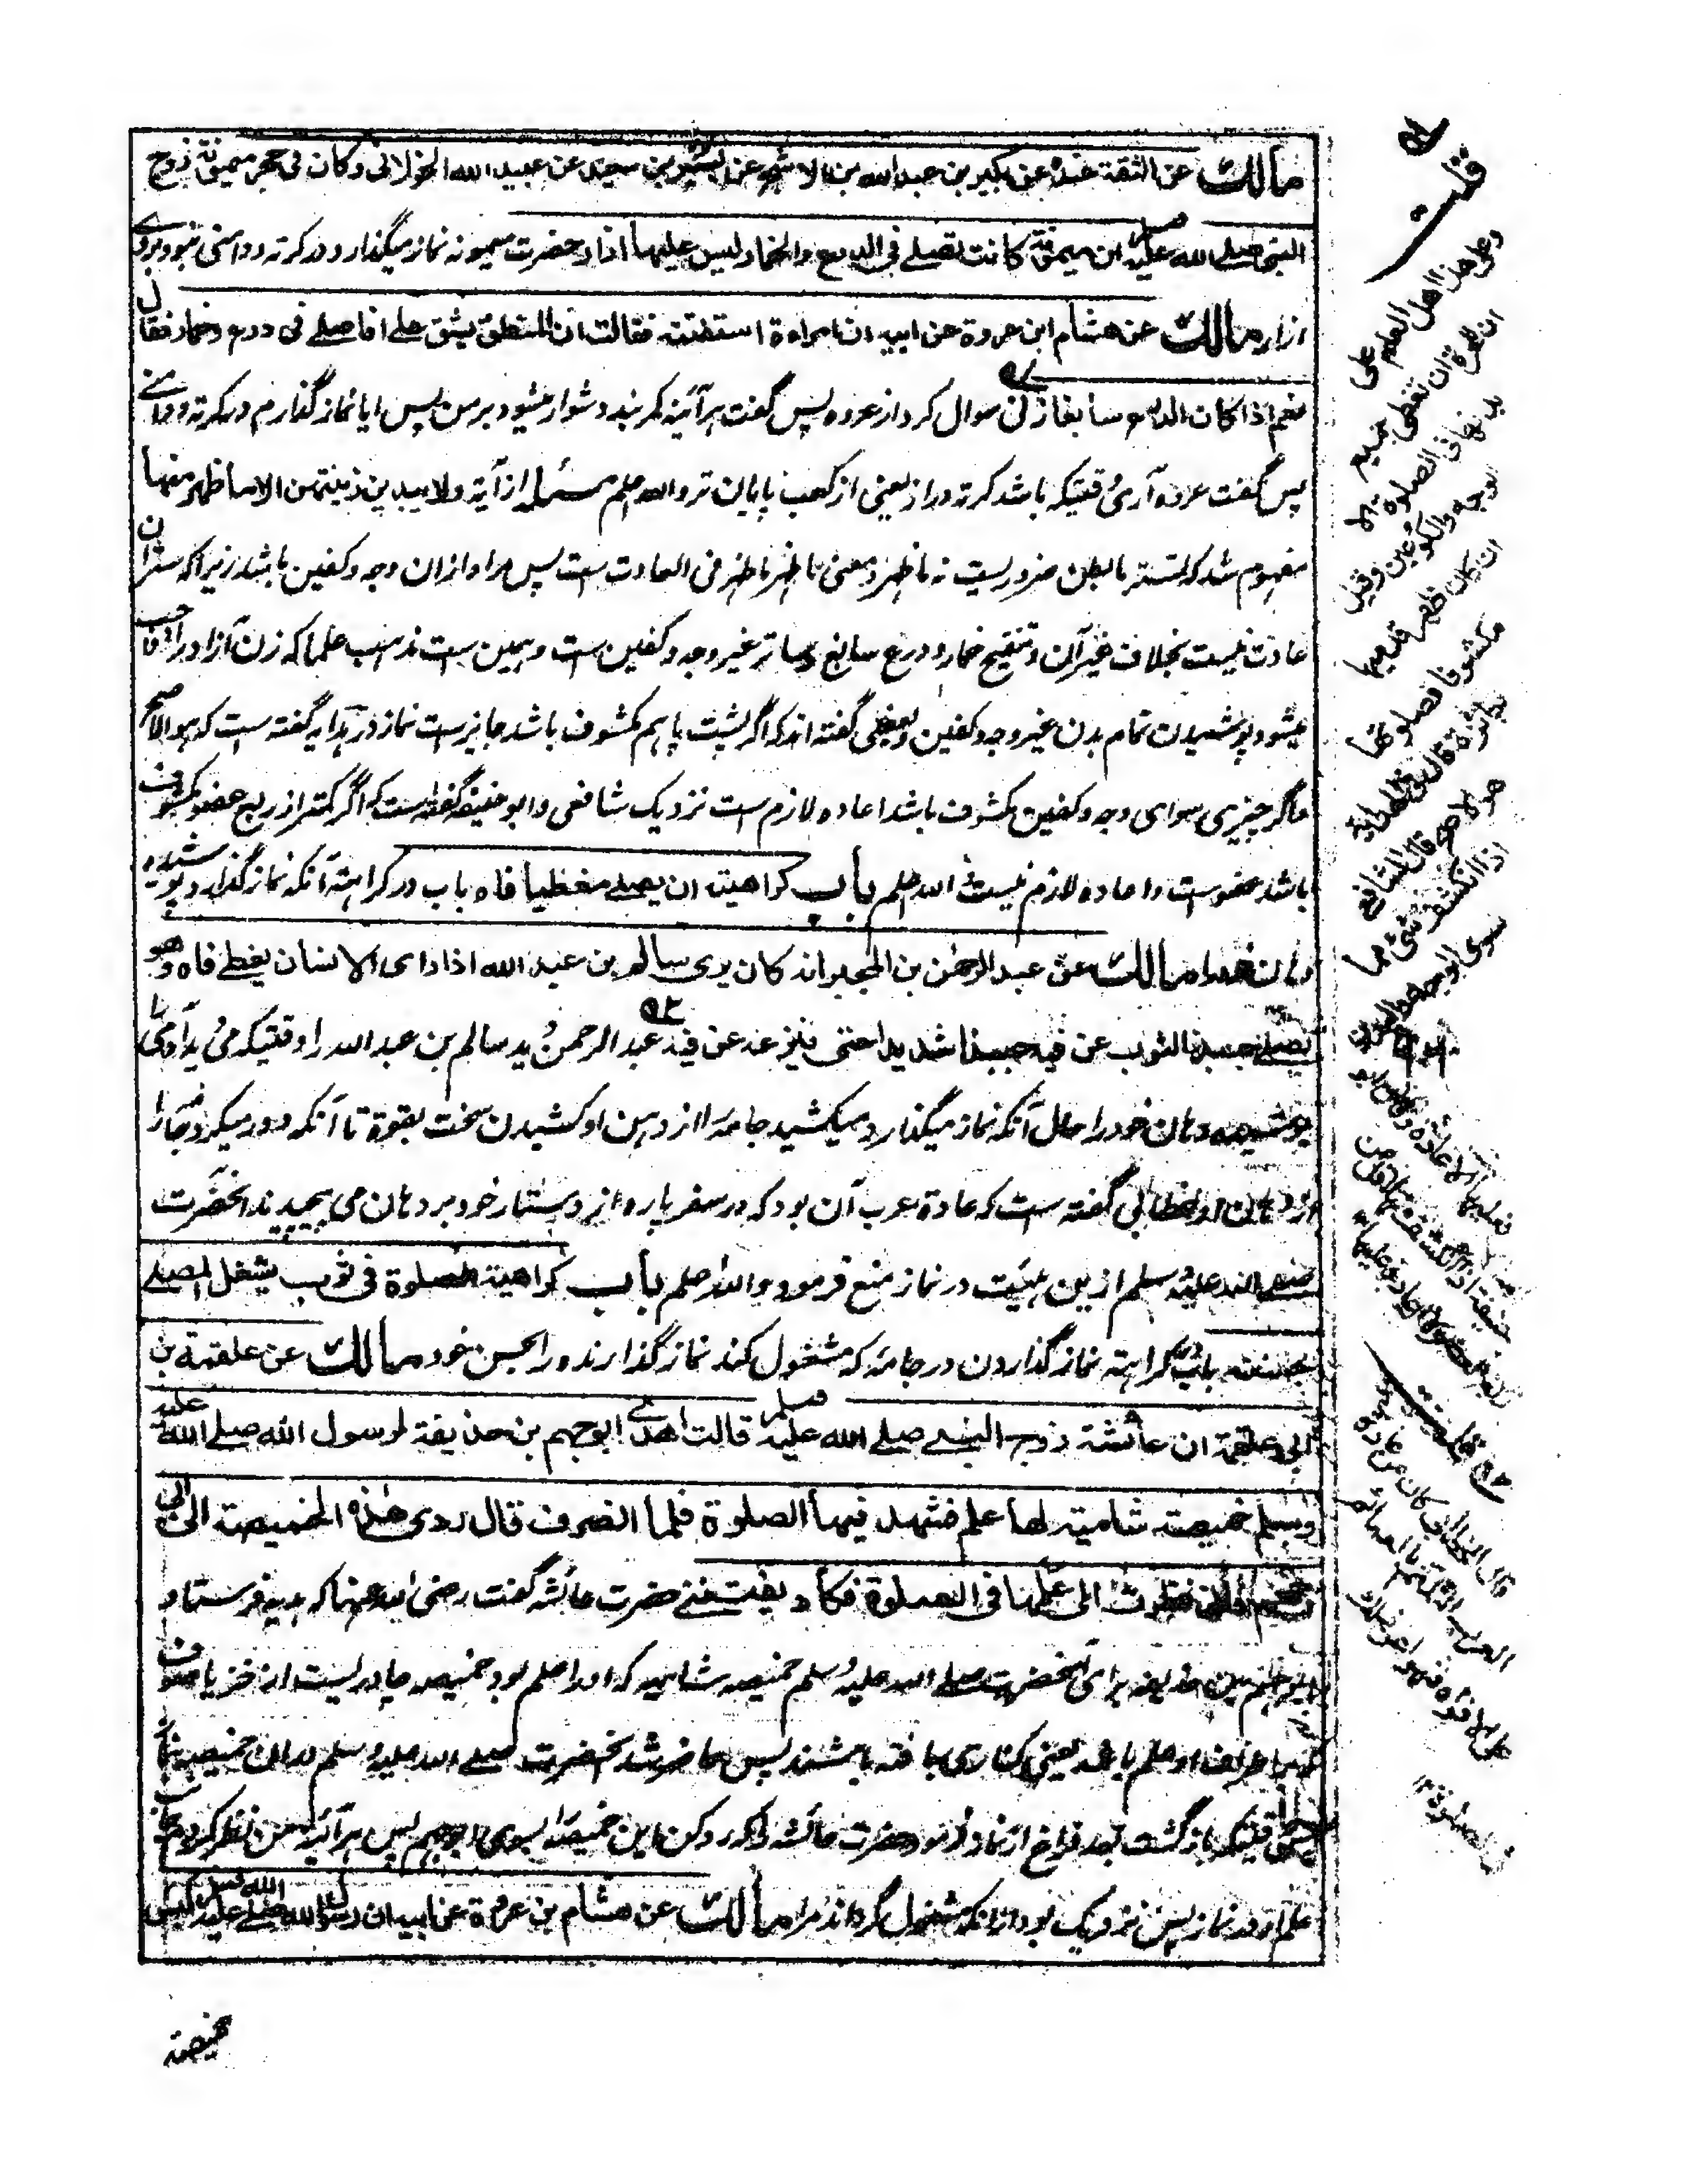 مالك عن الثقة عنده عن بكير بن عبدالله بن الاشج عن بسر بن سعيد عن عبيد الله الخولانی وكان فی حجر ميمونة زوج
النبی صلے الله عليه وسلم ان ميمونة كانت تصلے فی الدرع والخمار ليس عليها ازار حضرت ميمونه نماز ميگذارد در كرته و دامنی نبود بروے
ازار مالك عن هشام ابن عروة عن ابيه ان امراءة استفتته فقالت ان المنطق يشق علے افاصلے فی درع وخمار فقال
نعم اذا كان الدرع سابغا زنی سوال كرد از عروه پس گفت هر آئينه كمر بند دشوار ميشود بر من پس ايا نماز گذارم در كرته و دامنے
پس گفت عروه آری وقتيكه باشد كرته دراز يعنی از كعب پايان تر والله اعلم مسئله از آية ولا يبدين زينتهن الا ما ظهر منها
مفهوم شد كه تستر ما بطن ضروريست نه ما ظهر ومعنی ما ظهر ما ظهر فی العادت ست پس مراد ازان وجه وكفين باشد زيرا كه ستر آن
عادت نيست بخلاف غير آن و تنقيح خمار و درع سابغ ساتر غير وجه وكفين ست و همين ست مذهب علما كه زن آزاد را واجب
ميشود پوشيدن تمام بدن غير وجه وكفين وبعضی گفته اند كه اگر پشت پا هم مكشوف باشد جايز ست نماز در هدايه گفته ست كه هو الاصح
واگر چيزی سوای وجه وكفين مكشوف باشد اعاده لازم ست نزديك شافعی وابو حنيفه گفته ست كه اگر كمتر از ربع عضو مكشوف
باشد عفو ست واعاده لازم نيست والله اعلم باب كراهية ان يصلے مغطيا فاه باب در كراهة آنكه نماز گذارد پوشيده
دهان خود مالك عن عبد الرحمٰن بن المجبر انه كان يری سالم بن عبد الله اذا رای الانسان يغطے فاه وهو
يصلے جبذ الثوب عن فيه جبذا شديدا حتی ينزعه عن فيه عبد الرحمن ديد سالم بن عبد الله را وقتيكه می ديد آدمی را
پوشيده دهان خود را حال آنكه نماز ميگذارد ميكشيد جامه را از دهن او كشيدن سخت بقوة تا آنكه دور ميكرد جامه را
از دهان او خطابی گفته ست كه عادة عرب آن بود كه در سفر پاره از دستار خود بر دهان می پيچيدند آنحضرت
صلے الله عليه وسلم ازين هيئت در نماز منع فرمود والله اعلم باب كراهية الصلوة فی ثوب يشغل المصلے
بحسنه باب كراهته نماز گذاردن در جامه كه مشغول كند نماز گذارنده را بحسن خود مالك عن علقمة بن
ابی علقمة ان عائشة زوج النبی صلے الله عليه وسلم قالت اهدے ابو جهم بن حذيفة لرسول الله صلے الله عليه
وسلم خميصة شامية لها علم فشهد فيها الصلوة فلما انصرف قال ردی هذه الخميصة الی ابی
جهم فانی نظرت الی علمها فی الصلوة فكاد يفتننے حضرت عائشه گفت رضی الله عنها كه هديه فرستاد
ابو جهم بن حذيفه برای آنحضرت صلے الله عليه وسلم خميصه شاميه كه او را علم بود خميصه چادريست از خز يا صوف
كه اطراف او علم باشد يعنی كناری بافته باشند پس حاضر شد آنحضرت صلے الله عليه وسلم دران خميصه نماز
وقتيكه بازگشت بعد فراغ از نماز فرمود حضرت عائشه را كه رد كن اين خميصه را بسوی ابو جهم پس هر آئينه من نظر كردم بجانب
علم او در نماز پس نزديك بود از آنكه مشغول گرداند مرا مالك عن هشام بن عروة عن ابيه ان رسول الله صلے الله عليه وسلم لبس
خميصة
له قلت
وعلی هذا اهل العلم علی
ان المرأة ان تغطی جميع
بدنها فی الصلوة الا
الوجه والكوعين وقيل
ان كان ظهر قدميها
مكشوفا فصلوتها
جائزة قال فی الهداية
هو الاصح قال الشافعی
اذا انكشف شیء مما
سوی الوجه واليدين
فعليها الاعادة وقال ابو
حنيفة اذا انكشف اقل من
ربع العضو لا اعادة عليها
٢ه قلت
قال الخطابی كان من عادة
العرب التلثم بالعمائم
علی الافواه فنهوا عن ذلك
فی الصلوة ١٢